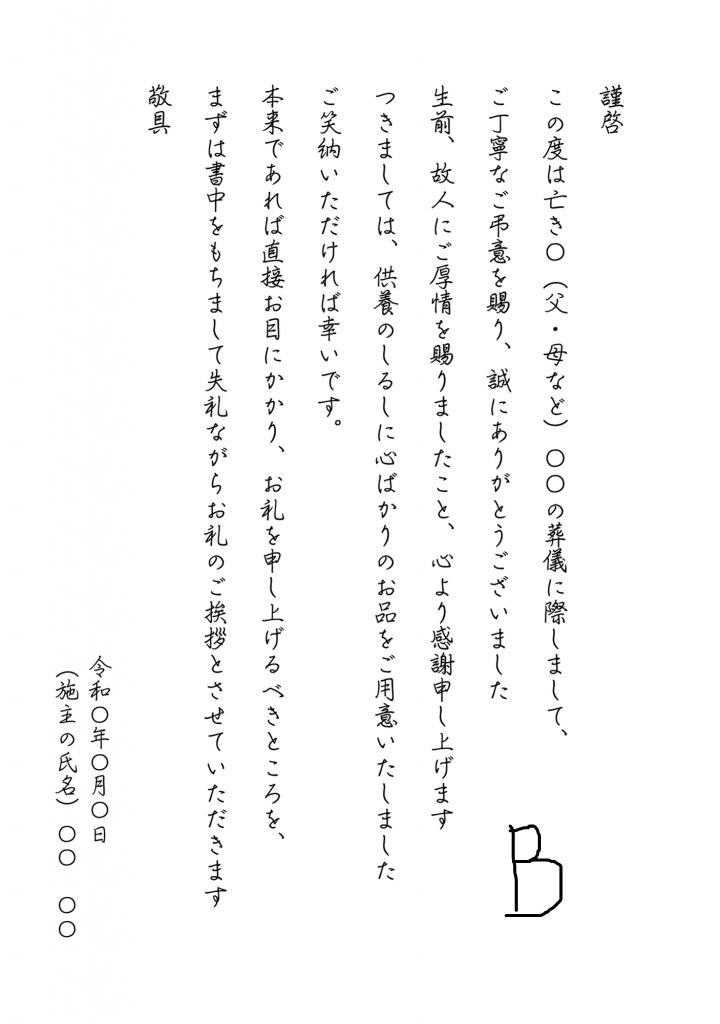 謹啓
この度は亡き〇（父・母など）〇〇の葬儀に際しまして、
ご丁寧なご弔意を賜り、誠にありがとうございました
生前、故人にご厚情を賜りましたこと、心より感謝申し上げます
つきましては、供養のしるしに心ばかりのお品をご用意いたしました
ご笑納いただければ幸いです。
本来であれば直接お目にかかり、お礼を申し上げるべきところを、
まずは書中をもちまして失礼ながらお礼のご挨拶とさせていただきます
敬具
令和〇年〇月〇日
（施主の氏名）〇〇　〇〇
B